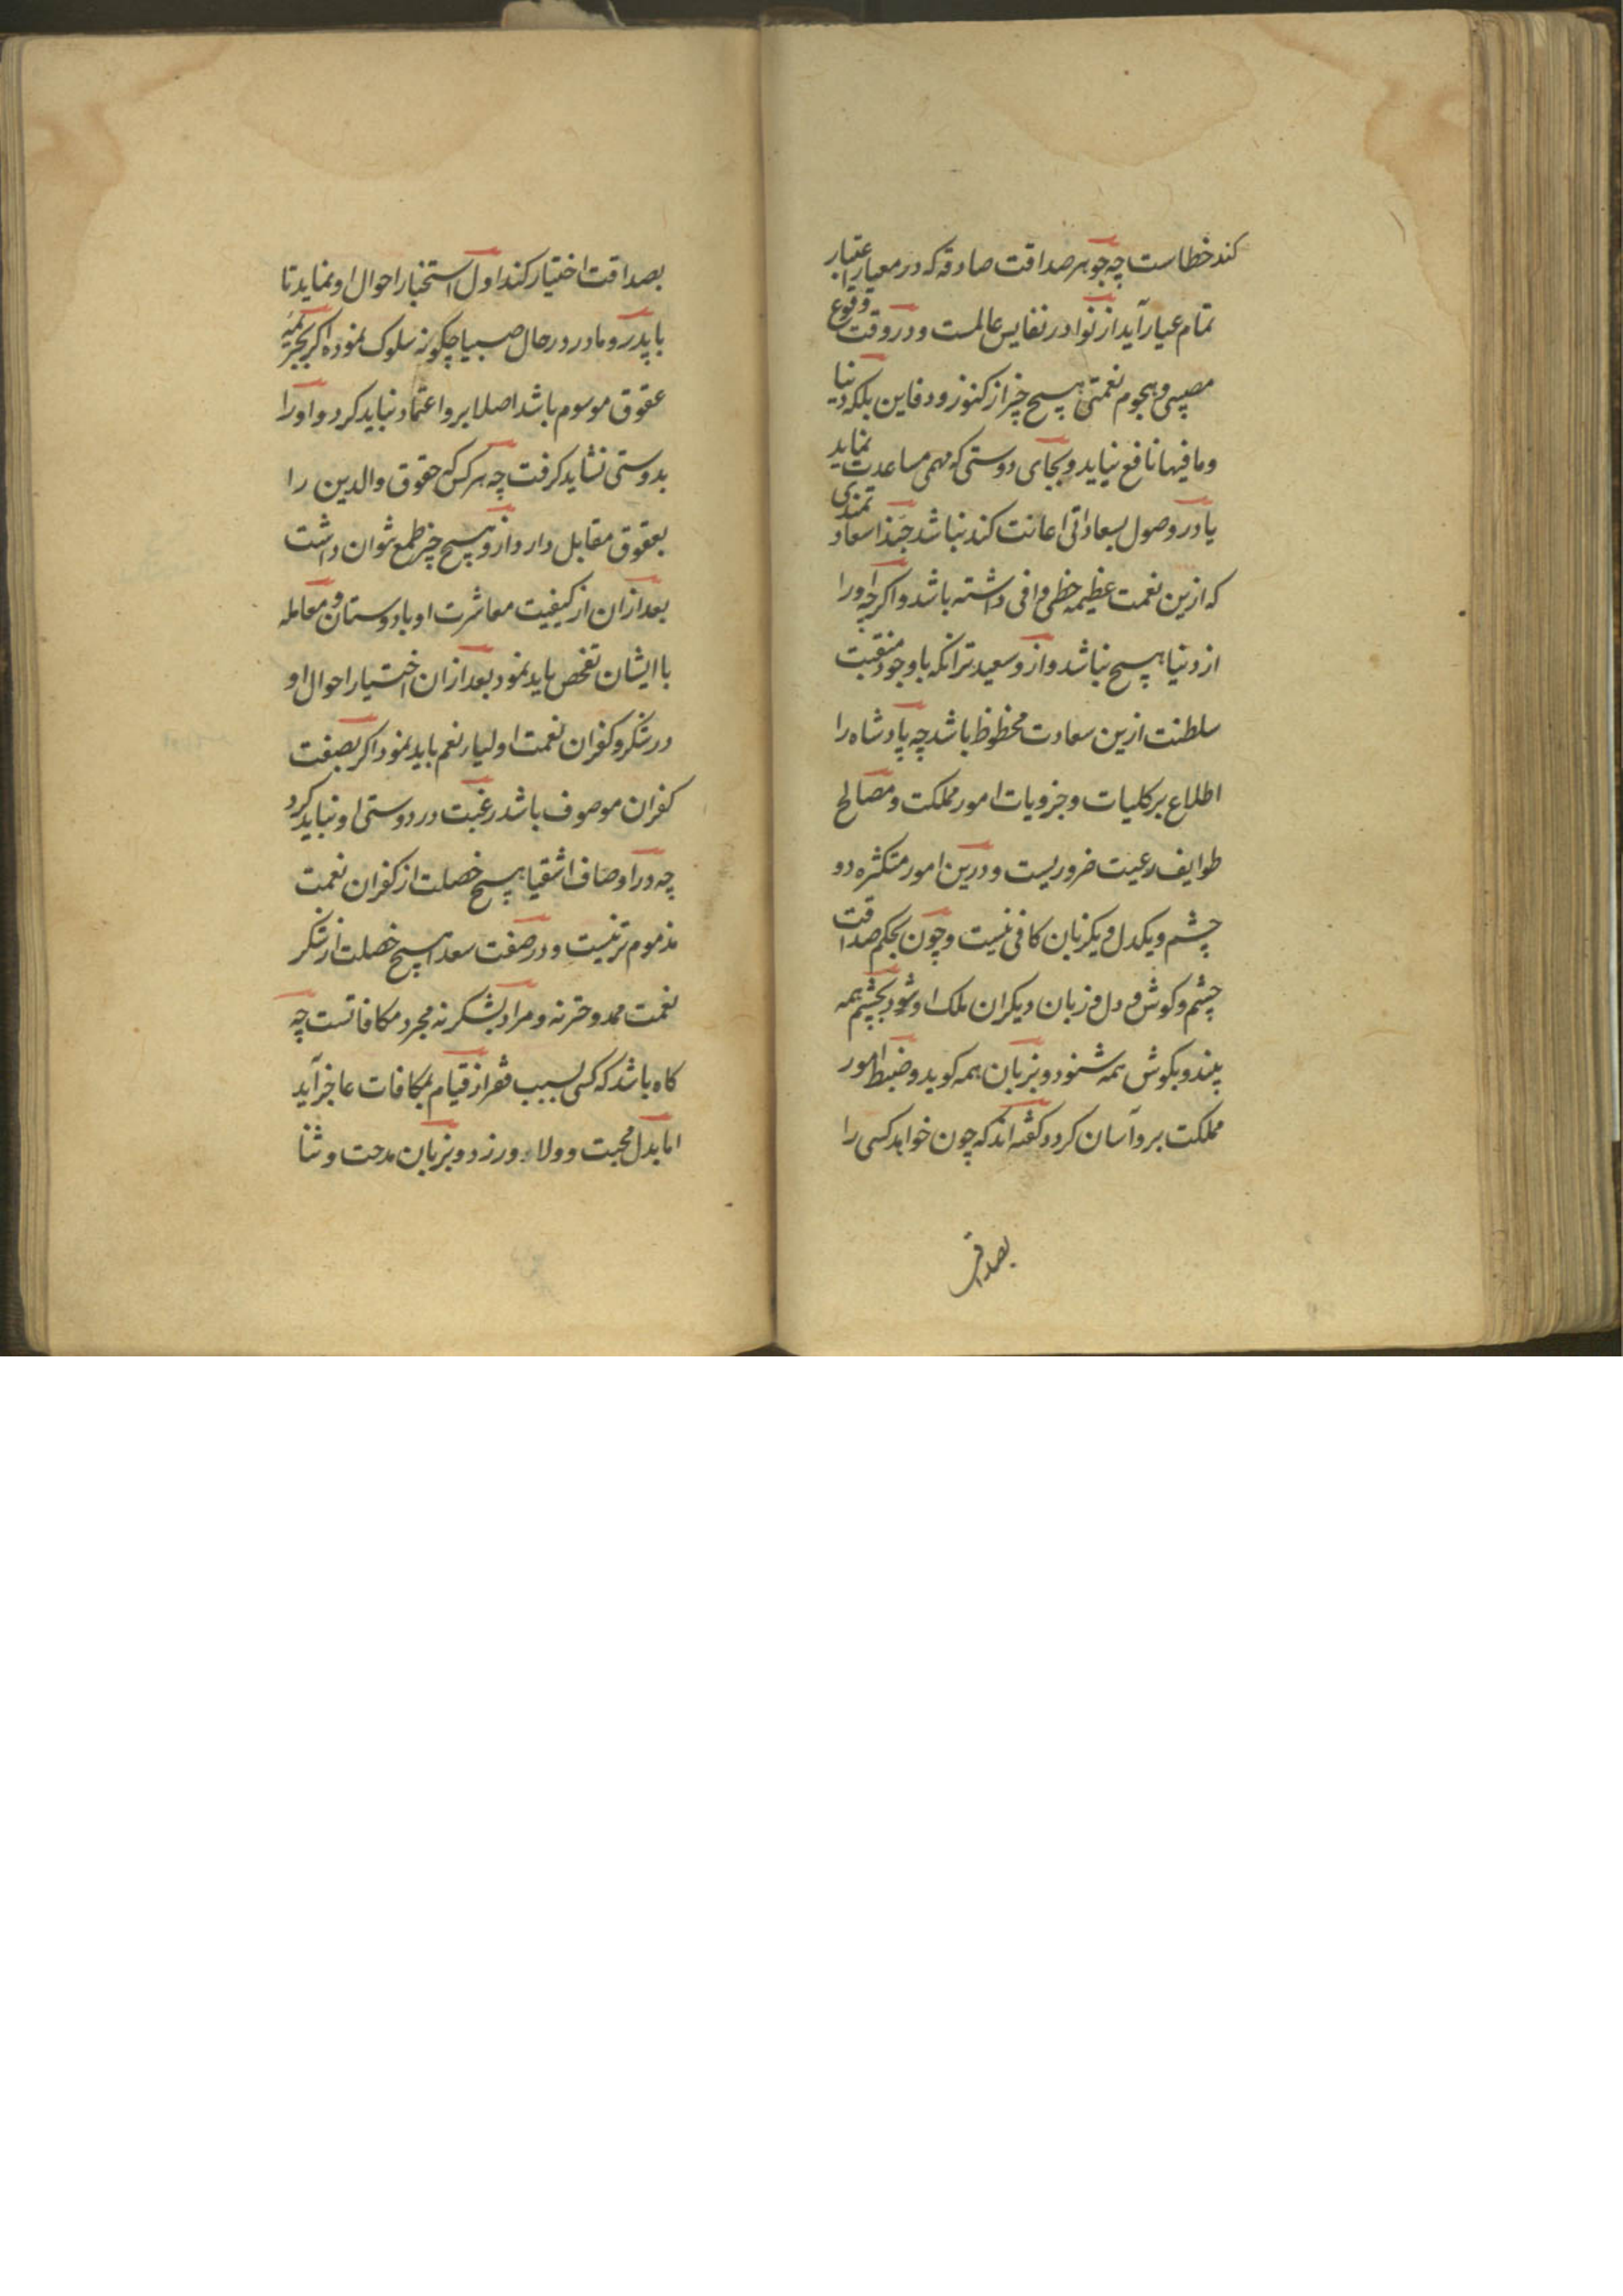 کند خطاست چه جوهر صداقت صادقه که در معیار اعتبار
تمام عیار آید از نوادر نفایس عالمست و در وقت وقوع
مصیبتی و هجوم نقمتی هیچ چیز از کنوز و دفاین بلکه دنیا
و مافیها نافع نیاید و بجای دوستی که در مهمی مساعدت نماید
یا در وصول بسعادتی اعانت کند نباشد حبذا سعادتمندی
که ازین نعمت عظیمه حظی وافی داشته باشد و اگرچه او را
از دنیا هیچ نباشد و ازو سعیدتر انکه با وجود منقبت
سلطنت ازین سعادت محظوظ باشد چه پادشاه را
اطلاع بر کلیات و جزویات امور مملکت و مصالح
طوایف رعیت ضروریست و درین امور متکثره دو
چشم و یکدل و یکزبان کافی نیست و چون بحکم صداقت
چشم و کوش و دل و زبان دیکران ملک او شود بچشم همه
بیند و بکوش همه شنود و بزبان همه کوید و ضبط امور
مملکت برو آسان کردد کفته اند که چون خواهد کسی را
بصداقت
بصداقت اختیار کند اول استخبار احوال او نماید تا
با پدر و مادر در حال صبا چکونه سلوک نموده اکر بجریمه
عقوق موسوم باشد اصلا برو اعتماد نباید کرد و او را
بدوستی نشاید کرفت چه هر کس که حقوق والدین را
بعقوق مقابل دارد ازو هیچ چیز طمع نتوان داشت
بعد ازان از کیفیت معاشرت او با دوستان و معامله
با ایشان تفحص باید نمود بعد ازان اختیار احوال او
در شکر و کفران نعمت اولیاء نعم باید نمود اکر بصفت
کفران موصوف باشد رغبت در دوستی او نباید کرد
چه در اوصاف اشقیا هیچ خصلت از کفران نعمت
مذموم تر نیست و در صفت سعدا هیچ خصلت از شکر
نعمت ممدوحتر نه و مراد بشکر نه مجرد مکافاتست چه
کاه باشد که کسی بسبب فقر از قیام بمکافات عاجز آید
اما بدل محبت و ولاء ورزد و بزبان مدحت و ثنا